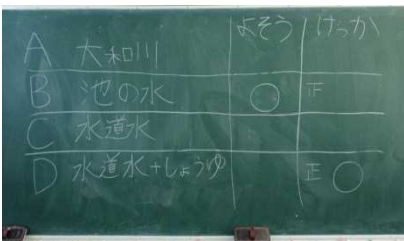 よそう けっか
A 大和川
B 池の水 ○ 正
C 水道水
D 水道水+しょうゆ 正 ○